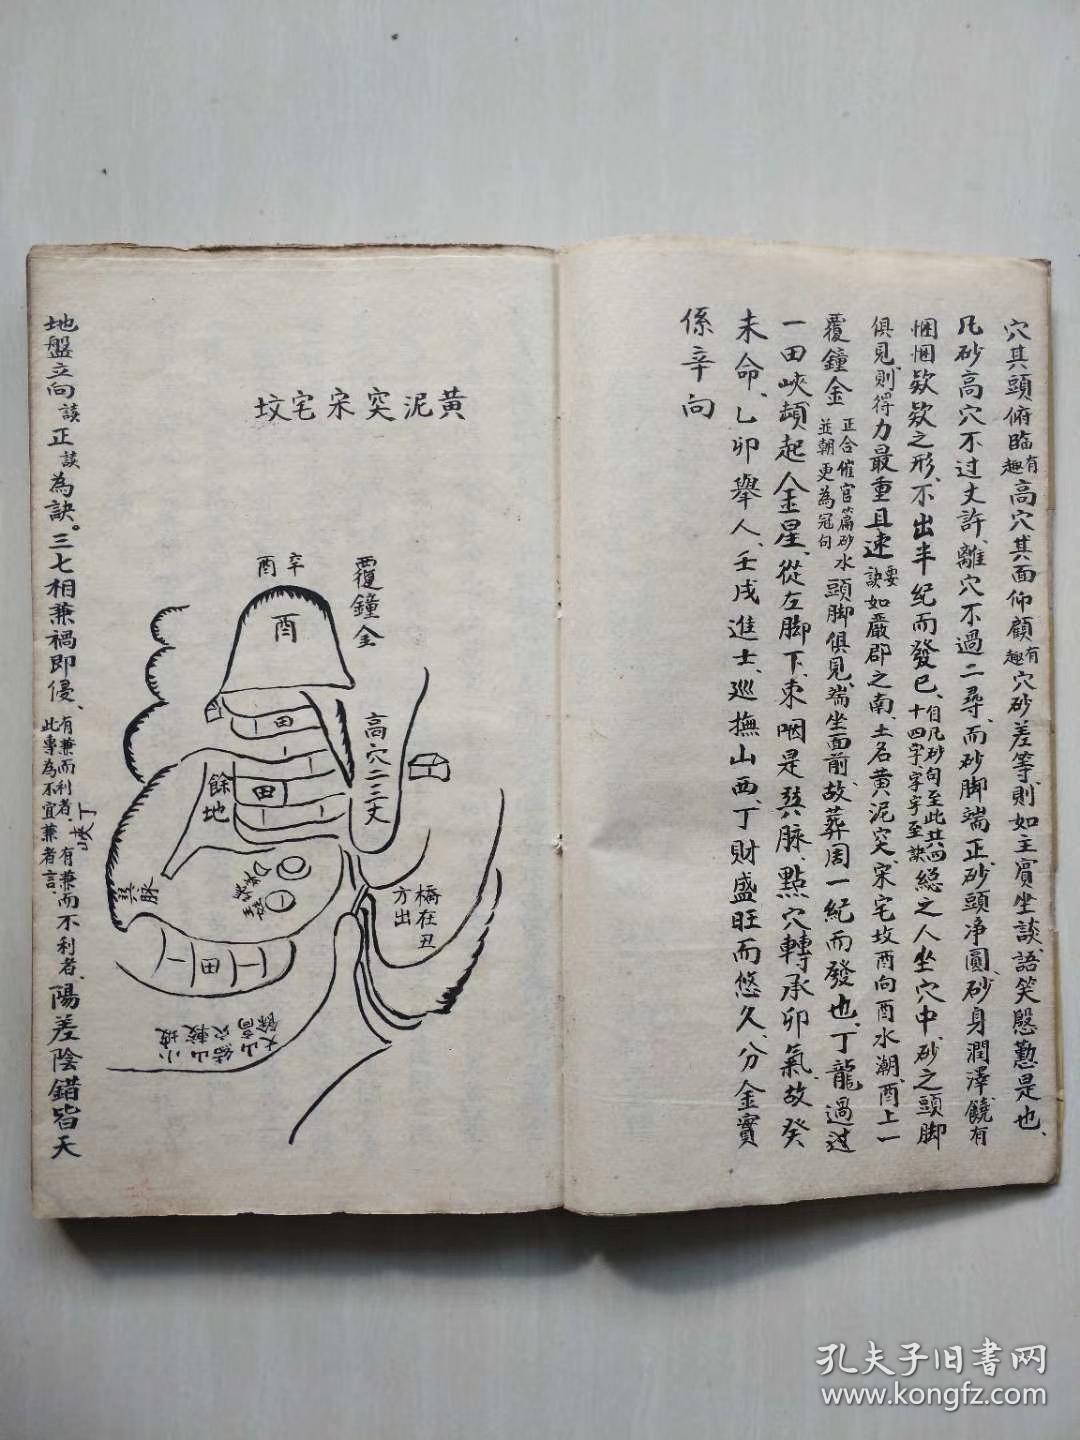 穴其頭俯臨有趣高穴其面仰顧有趣穴砂差等則如主賓坐談語笑慇懃是也、
凡砂高穴不过丈許、離穴不過二尋、而砂脚端正、砂頭净圓、砂身潤澤饒有
悃悃欵欵之形、不出半紀而發已、自凡砂句至此共四十四字字字至訣總之人坐穴中、砂之頭脚
俱見、則得力最重且速要訣如嚴郡之南、土名黄泥突、宋宅坟酉向酉水潮、酉上一
覆鐘金正合催官篇砂水並朝更為冠句頭脚俱見、端坐面前、故葬周一紀而發也、丁龍過过
一田峽頓起金星、從左脚下、束咽是巽脉、點穴轉承卯氣、故癸
未命、乙卯舉人、壬戌進士、巡撫山西、丁財盛旺而悠久、分金實
係辛向
黄泥突宋宅坟
辛酉
覆鐘金
酉
田
高穴二三丈
餘地
田
巽脉
橋在丑方出
田
丁峡
地盤立向談正談為訣。三七相兼禍即侵、有兼而利者、有兼而不利者、此專為不宜兼者言、陽差陰錯皆天
孔夫子旧書网
www.kongfz.com